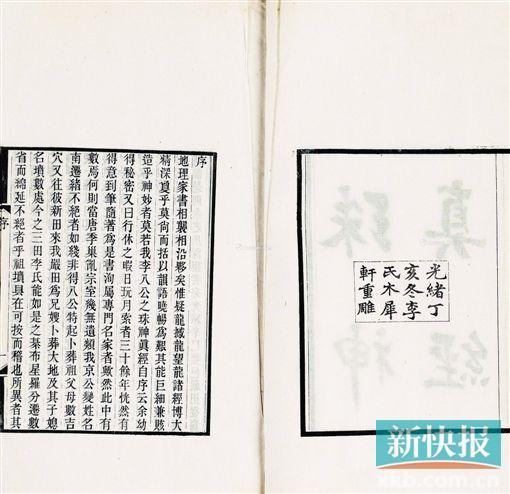 光緒丁
亥冬李
氏木犀
軒重雕
序
地理家書相襲相沿夥矣惟疑龍撼龍望龍諸經博大
精深夐乎莫尚而拘以韻語曉暢爲艱其能巨細兼賅
造乎神妙者莫若我李八公之珠神眞經自序云余幼
得秘密又曰行休之暇日玩月索者三十餘年恍然有
得意到筆隨著爲是書洵屬專門名家者歟然此中有
數焉何則當唐季巢亂宗室殘無遺類我京公變姓名
南遷緒不絕者如綫非得八公特起卜葬祖父母數吉
穴又往彼新田來我嚴田爲兄嫂卜葬大地及其子媳
名墳數處今之三田李氏能如是之棊布星羅分遷數
省而綿延不絕者乎祖墳具在可按而稽也所異者其
序
一
新快报
xkb.com.cn